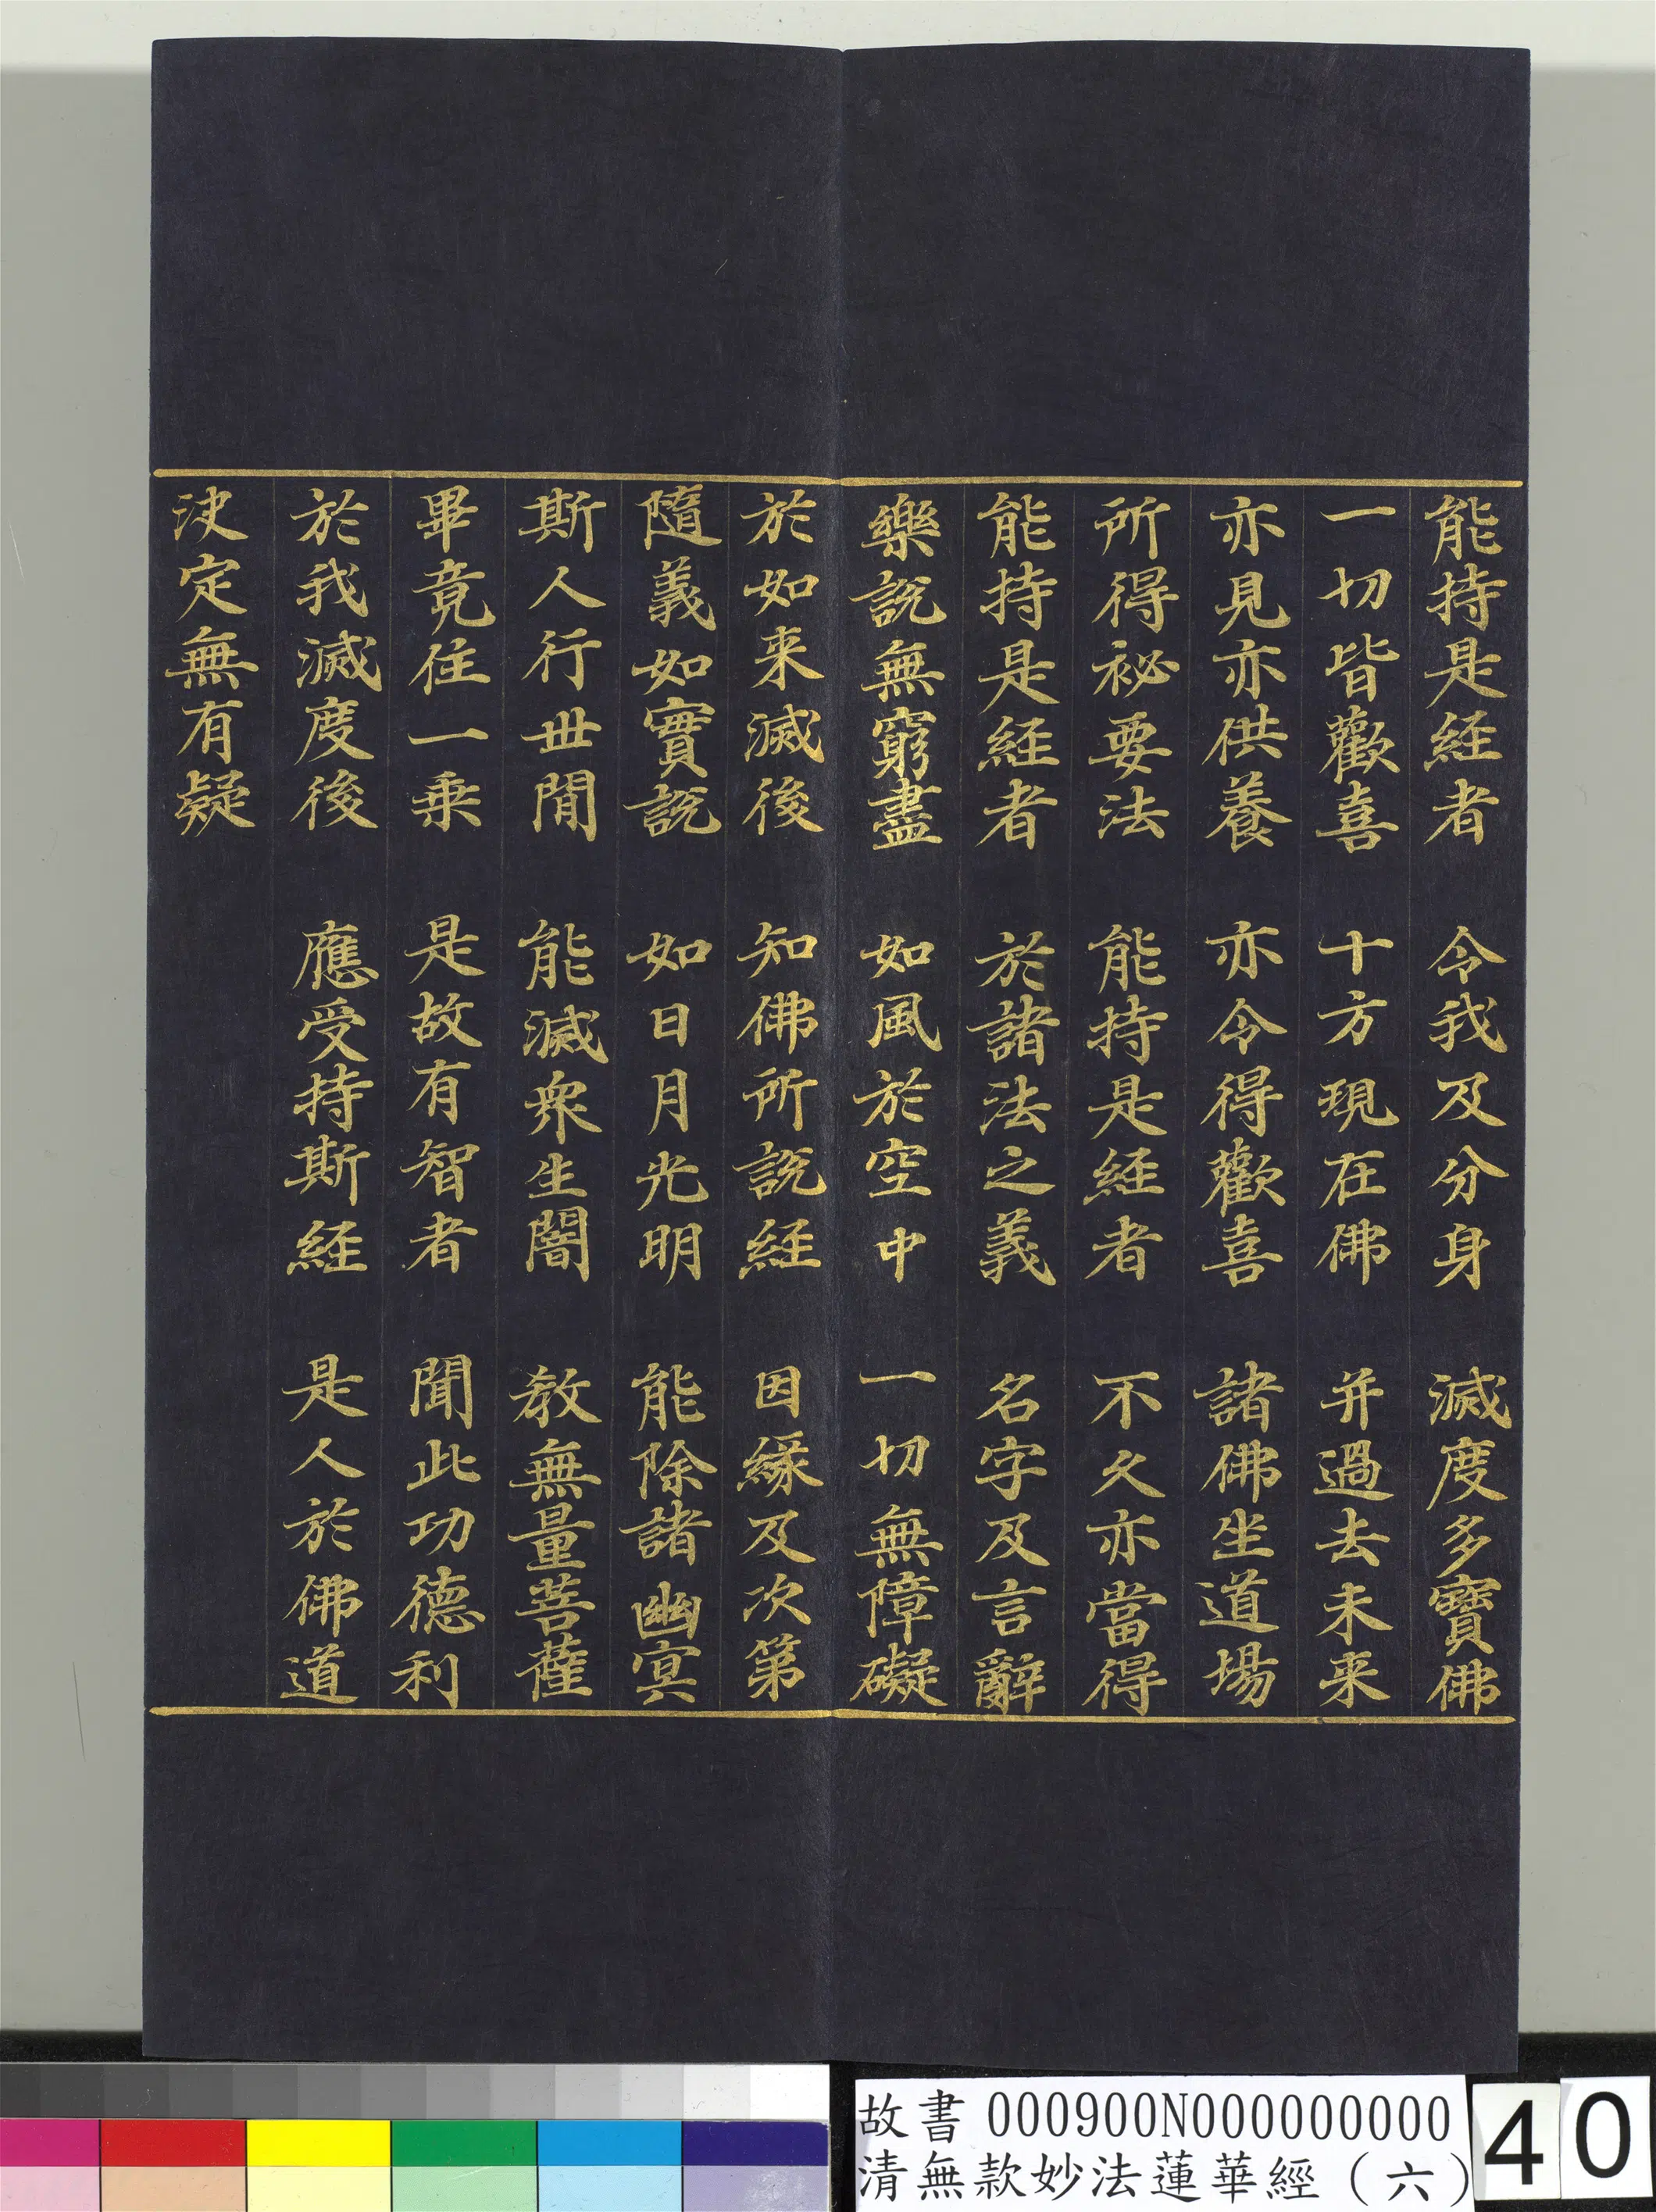 能持是経者　令我及分身　滅度多寶佛
一切皆歡喜　十方現在佛　并過去未来
亦見亦供養　亦令得歡喜　諸佛坐道場
所得祕要法　能持是経者　不久亦當得
能持是経者　於諸法之義　名字及言辭
樂說無窮盡　如風於空中　一切無障礙
於如来滅後　知佛所說経　因緣及次第
隨義如實說　如日月光明　能除諸幽冥
斯人行世間　能滅眾生闇　教無量菩薩
畢竟住一乘　是故有智者　聞此功德利
於我滅度後　應受持斯経　是人於佛道
決定無有疑
故書 000900N000000000
清無款妙法蓮華經（六）
40